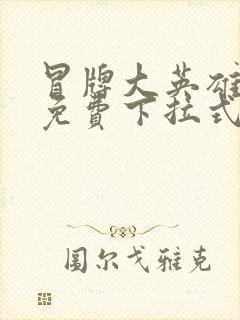 冒牌大英雄
免費下拉式
圖尔戈雅克